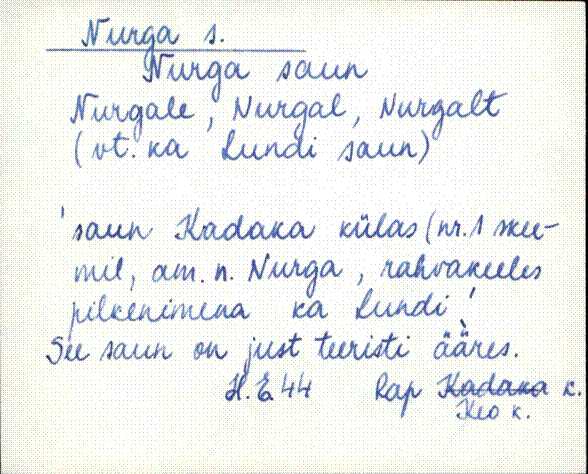 Nurga s.
Nurga saun
Nurgale, Nurgal, Nurgalt
(vt. ka Lundi saun)
'saun Kadaka külas (nr. 1 skee-
mil, am. n. Nurga, rahvakeeles
pilkenimena ka Lundi!
See saun on just teeristi ääres.
H. E. 44 Rap Kadaka k.
Keo k.